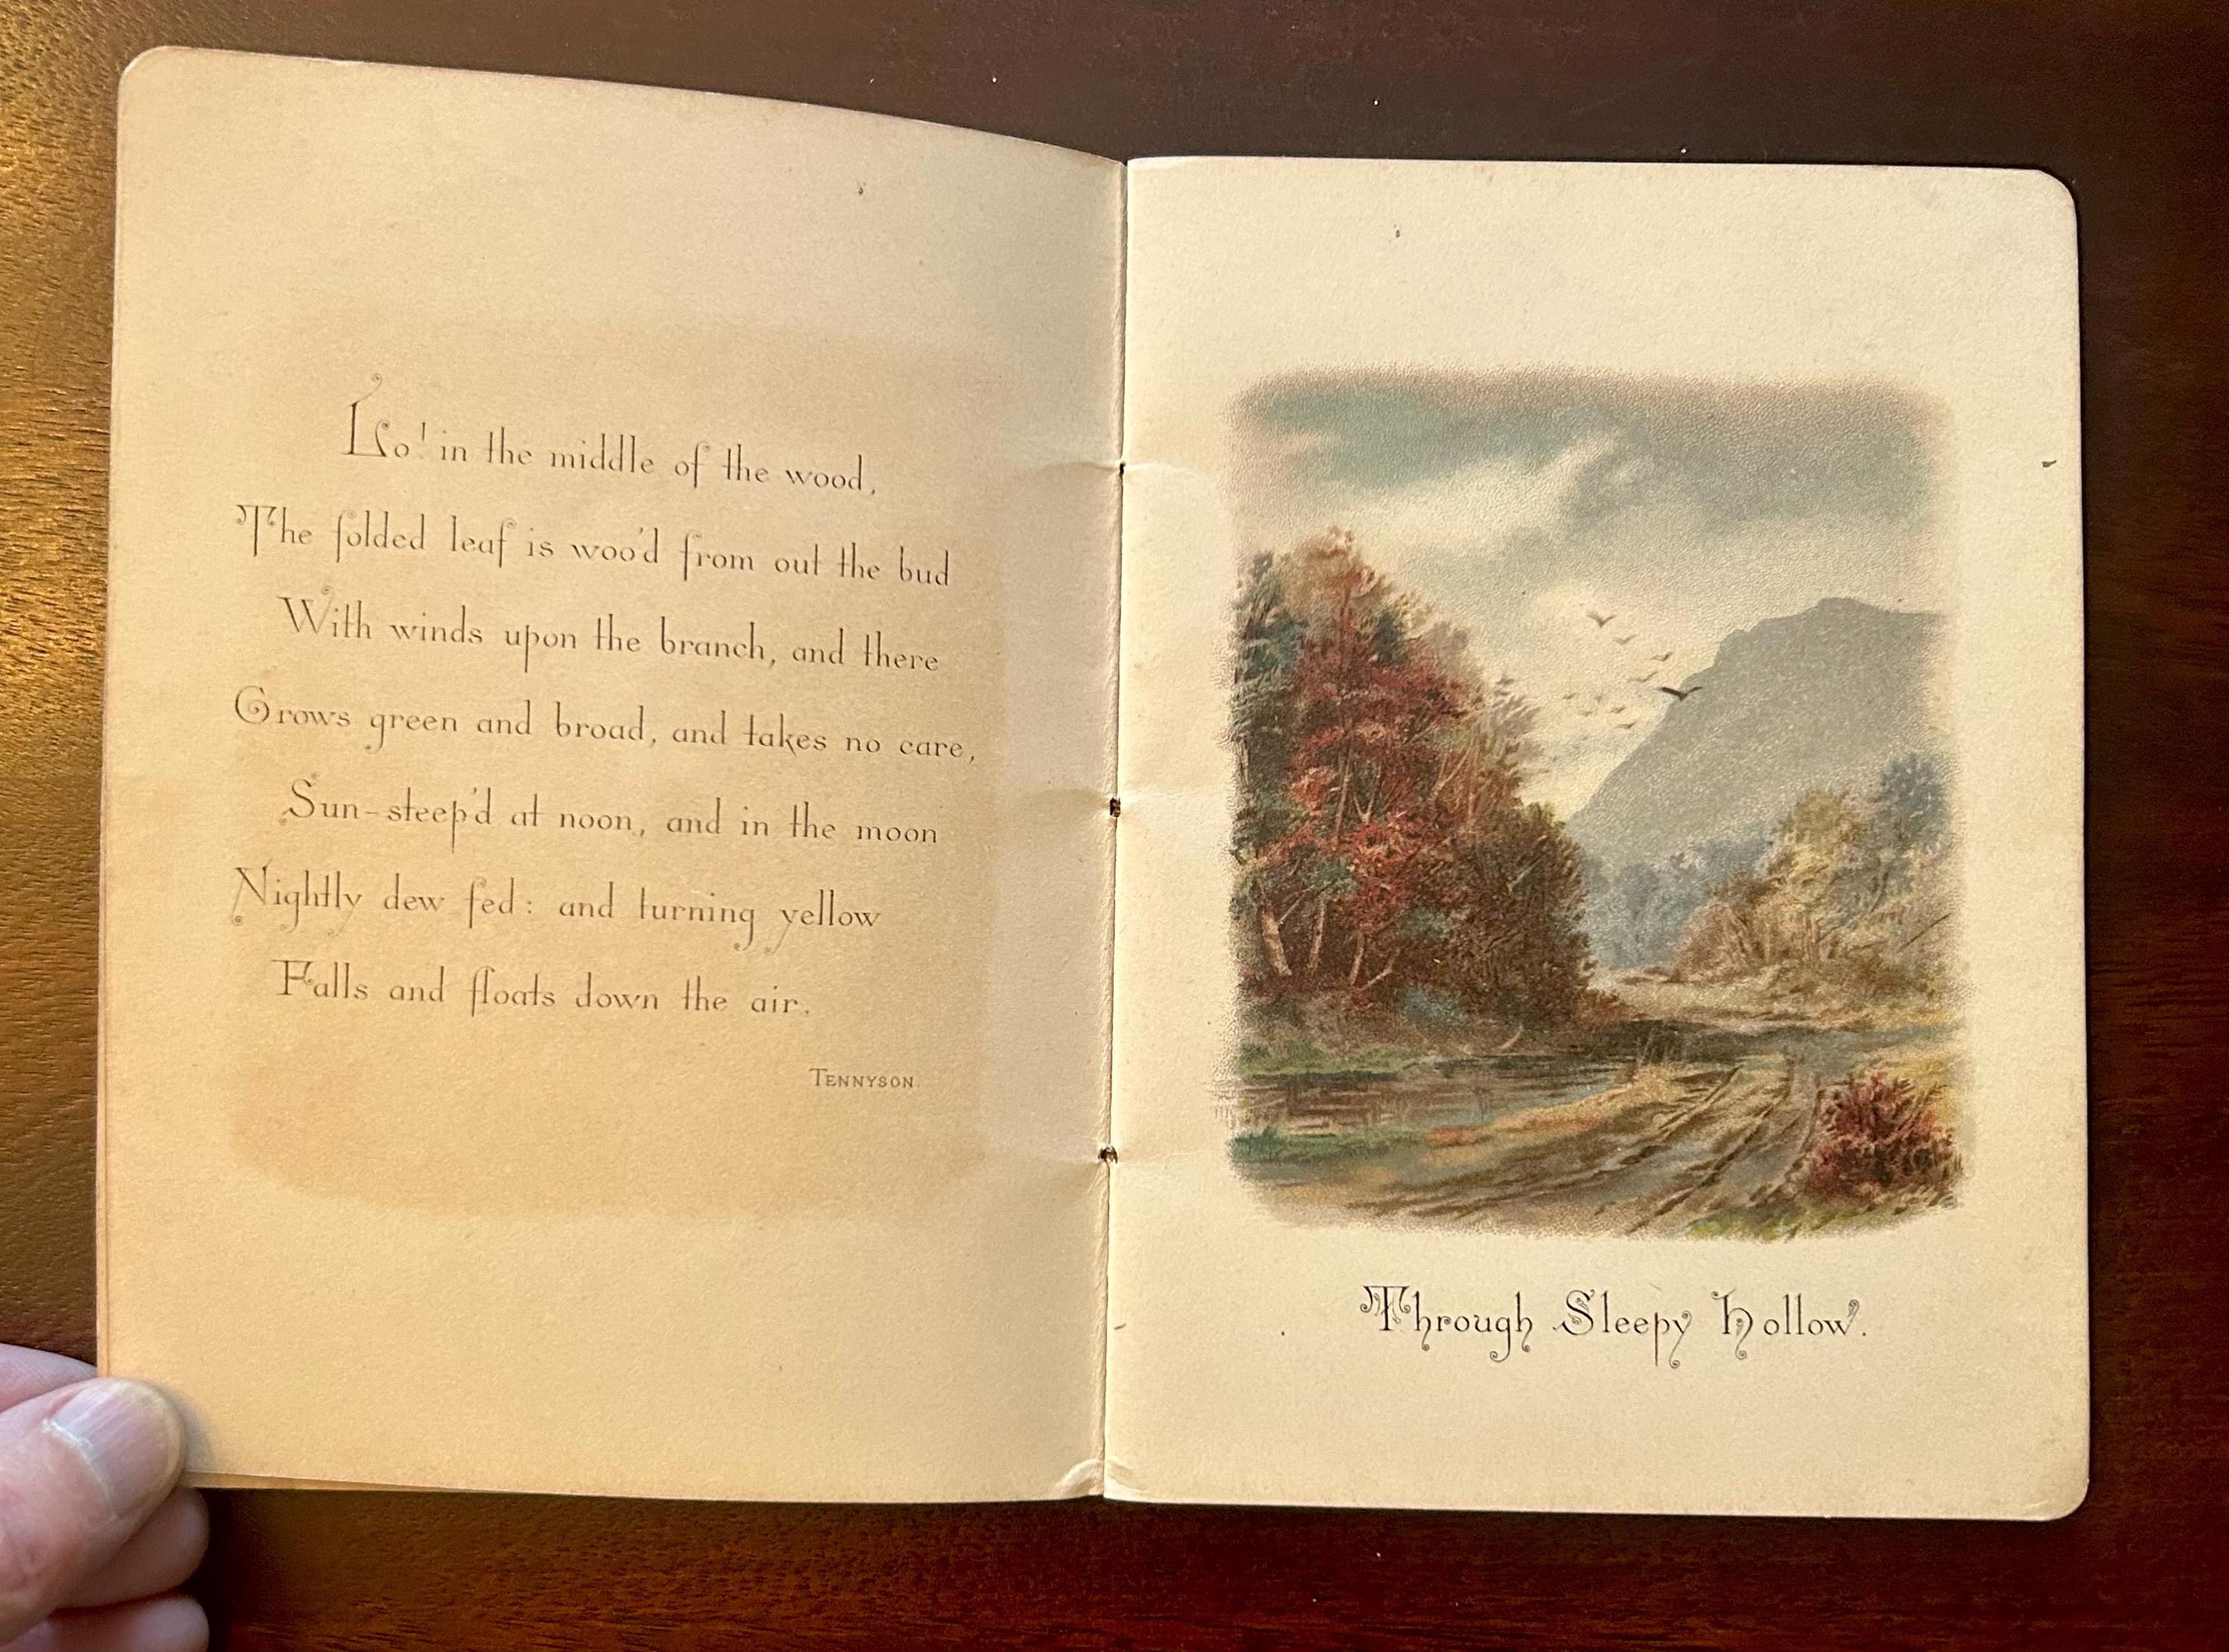 Lo! in the middle of the wood,
The folded leaf is woo'd from out the bud
With winds upon the branch, and there
Grows green and broad, and takes no care,
Sun-steep'd at noon, and in the moon
Nightly dew fed: and turning yellow
Falls and floats down the air.
TENNYSON.
Through Sleepy Hollow.